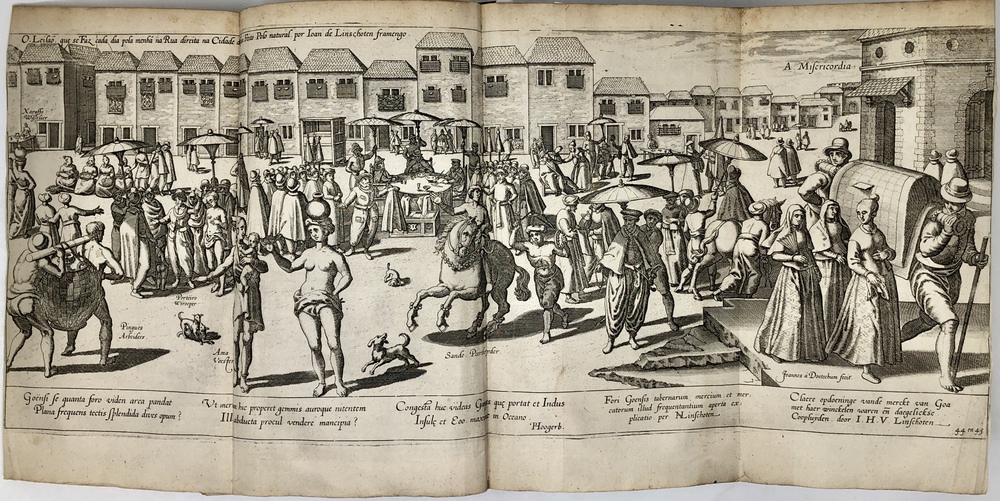 O Leilaõ que se Faz cada dia pola menhã na Rua direita na Cidade de Polo natural por Ioan de Linschoten framengo
A Misericordia
Xaraffo
Wisseler
Porteiro
Wtroeper
Pingues
Arbeiders
Ama
Voester
Sande
Joannes a Doetechum fecit
Goensi se quanta foro viden area pandat
Plana frequens tectis splendida dives opum?
Vt huc properet gemmis auroque nitentem
abducta procul vendere mancipia?
Congesta huc videas quę portat et Indus
Insulę et Eoo in Oceano.
Hoogerb.
Fori Goensis tabernarum mercium et mer,
catorum illud frequentantium aperta ex,
plicatio per Linschoten
Claere opdoeninge vande merckt van Goa
met haer winckelen waren en daegelickse
Coopluyden door I. H. V. Linschoten
44 en 45